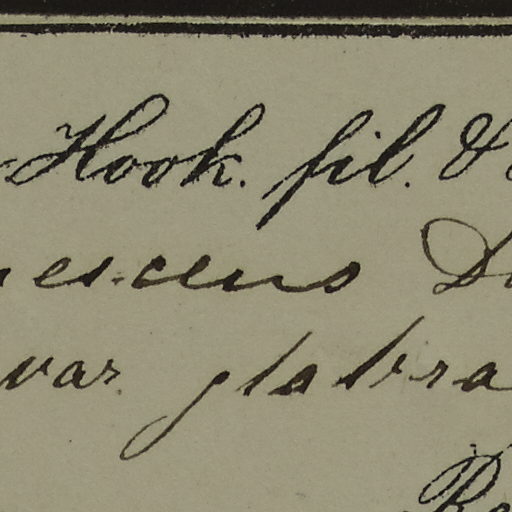 Hook. fil. &
nescens D
var. glabra
Re